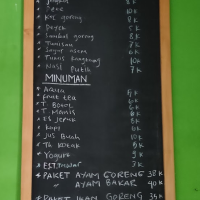 Pete 8 K
Kol goreng 8 K
Peyek 5 K
Sambal goreng 8 K
Tumisan 7 K
Sayur asem 6 K
Tumis Kangkung 10 K
Nasi Putih 7 K
MINUMAN
Aqua 5 K
Fruit tea
T Botol 6 K
T Manis 5 K
ES Jeruk 8 K
Kopi
Jus Buah 10 K
Th Kotak 5 K
Yogurt 9 K
EST Tawar 3 K
* PAKET AYAM GORENG 38 K
AYAM BAKAR 40 K
* PAKET IKAN GORENG 34 K